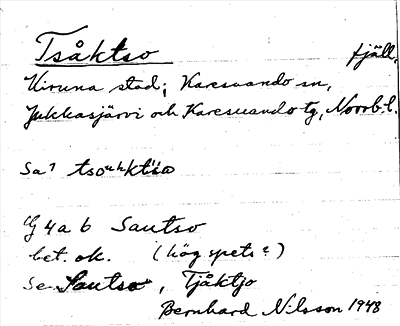 Tsåktso fjäll,
Kiruna stad; Karesuando sn,
Jukkasjärvi och Karesuando tg, Norrb.l.
Sa?
4a b Sautso
bet. ok. (hög spets?)
Se Sautso, Tjåktjo
Bernhard Nilsson 1948